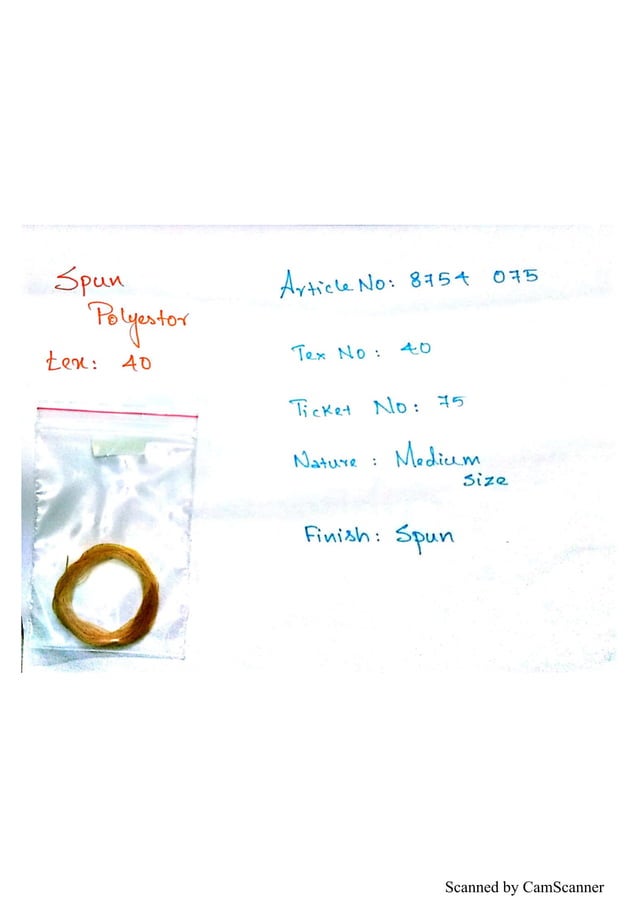 Spun
Polyestor
tex: 40
Article No: 8754 075
Tex No: 40
Ticket No: 75
Nature: Medium
size
Finish: Spun
Scanned by CamScanner